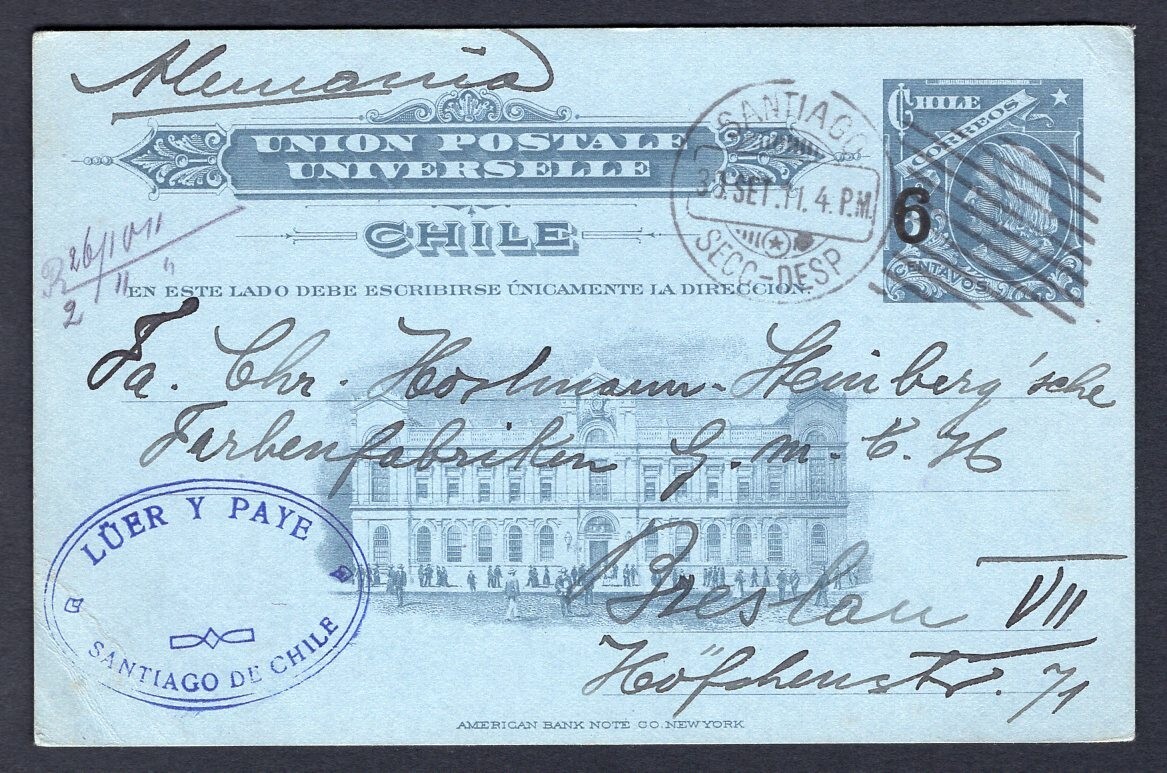 Alemania
UNION POSTALE
UNIVERSELLE
CHILE
SANTIAGO
SET.11. 4. P.M.
SECC-DESP
CHILE
CORREOS
6
CENTAVOS
26/10 11
2/11 "
EN ESTE LADO DEBE ESCRIBIRSE ÚNICAMENTE LA DIRECCION.
Fa. Chr. Hostmann-Steinberg'sche
Farbenfabriken G.m.b.H
Breslau VII
Höfchenstr. 71
LÜER Y PAYE
SANTIAGO DE CHILE
AMERICAN BANK NOTE CO. NEW YORK